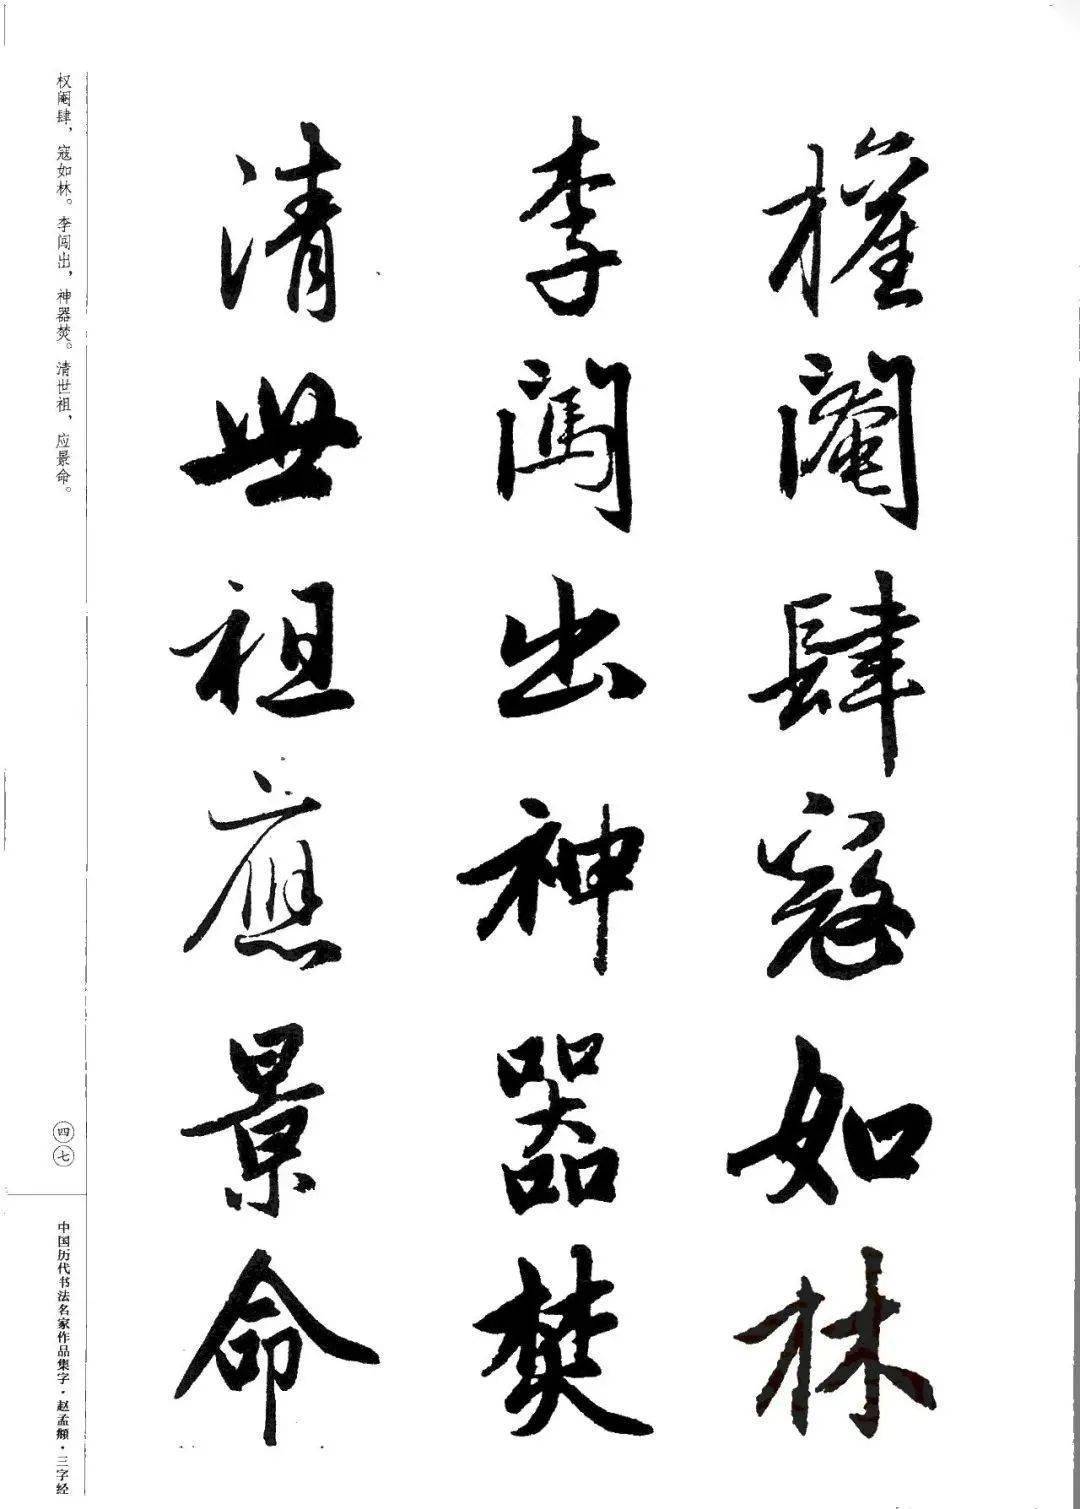 權阉肆寇如林
李闖出神器焚
清世祖應景命
权阉肆，寇如林。李闯出，神器焚。清世祖，应景命。
四七
中国历代书法名家作品集字·赵孟頫·三字经